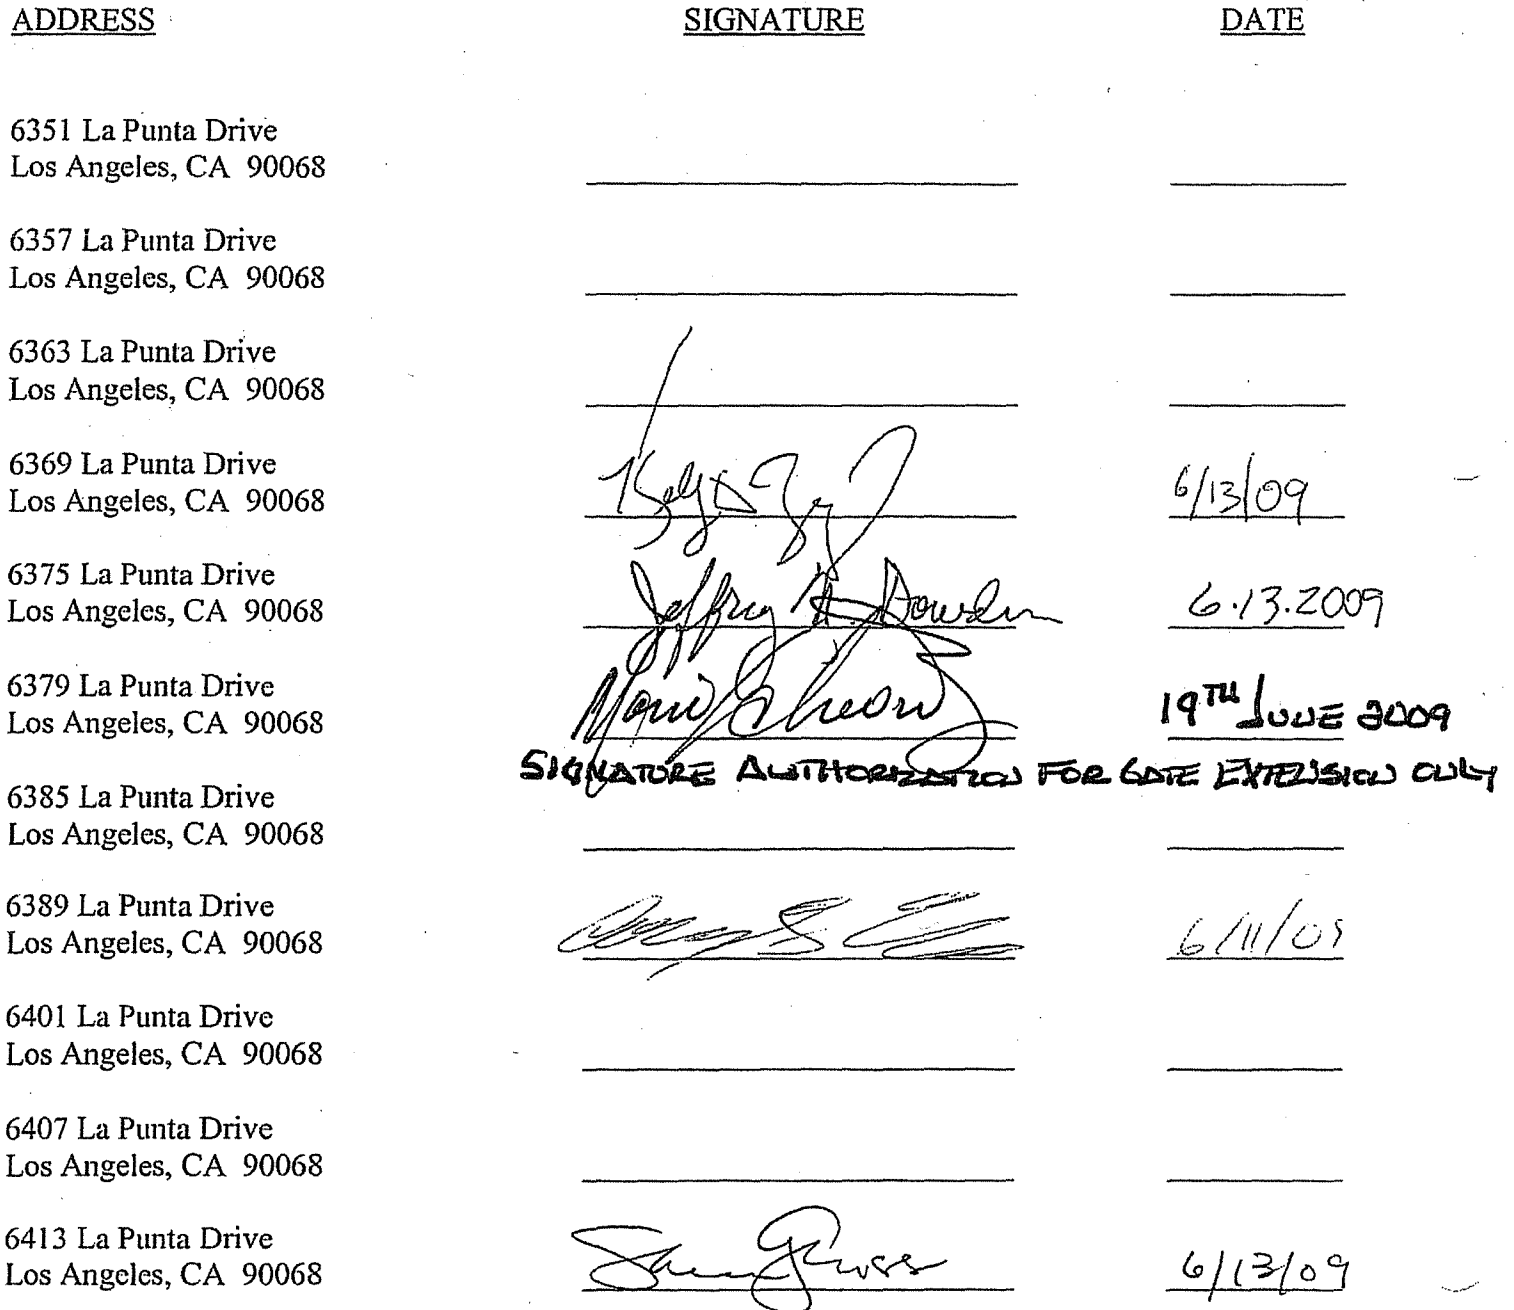 ADDRESS SIGNATURE DATE
6351 La Punta Drive
Los Angeles, CA 90068
6357 La Punta Drive
Los Angeles, CA 90068
6363 La Punta Drive
Los Angeles, CA 90068
6369 La Punta Drive
Los Angeles, CA 90068 6/13/09
6375 La Punta Drive
Los Angeles, CA 90068 Jeffrey 6.13.2009
6379 La Punta Drive
Los Angeles, CA 90068 19TH JUNE 2009
SIGNATURE AUTHORIZATION FOR GATE EXTENSION ONLY
6385 La Punta Drive
Los Angeles, CA 90068
6389 La Punta Drive
Los Angeles, CA 90068 6/11/09
6401 La Punta Drive
Los Angeles, CA 90068
6407 La Punta Drive
Los Angeles, CA 90068
6413 La Punta Drive
Los Angeles, CA 90068 6/13/09